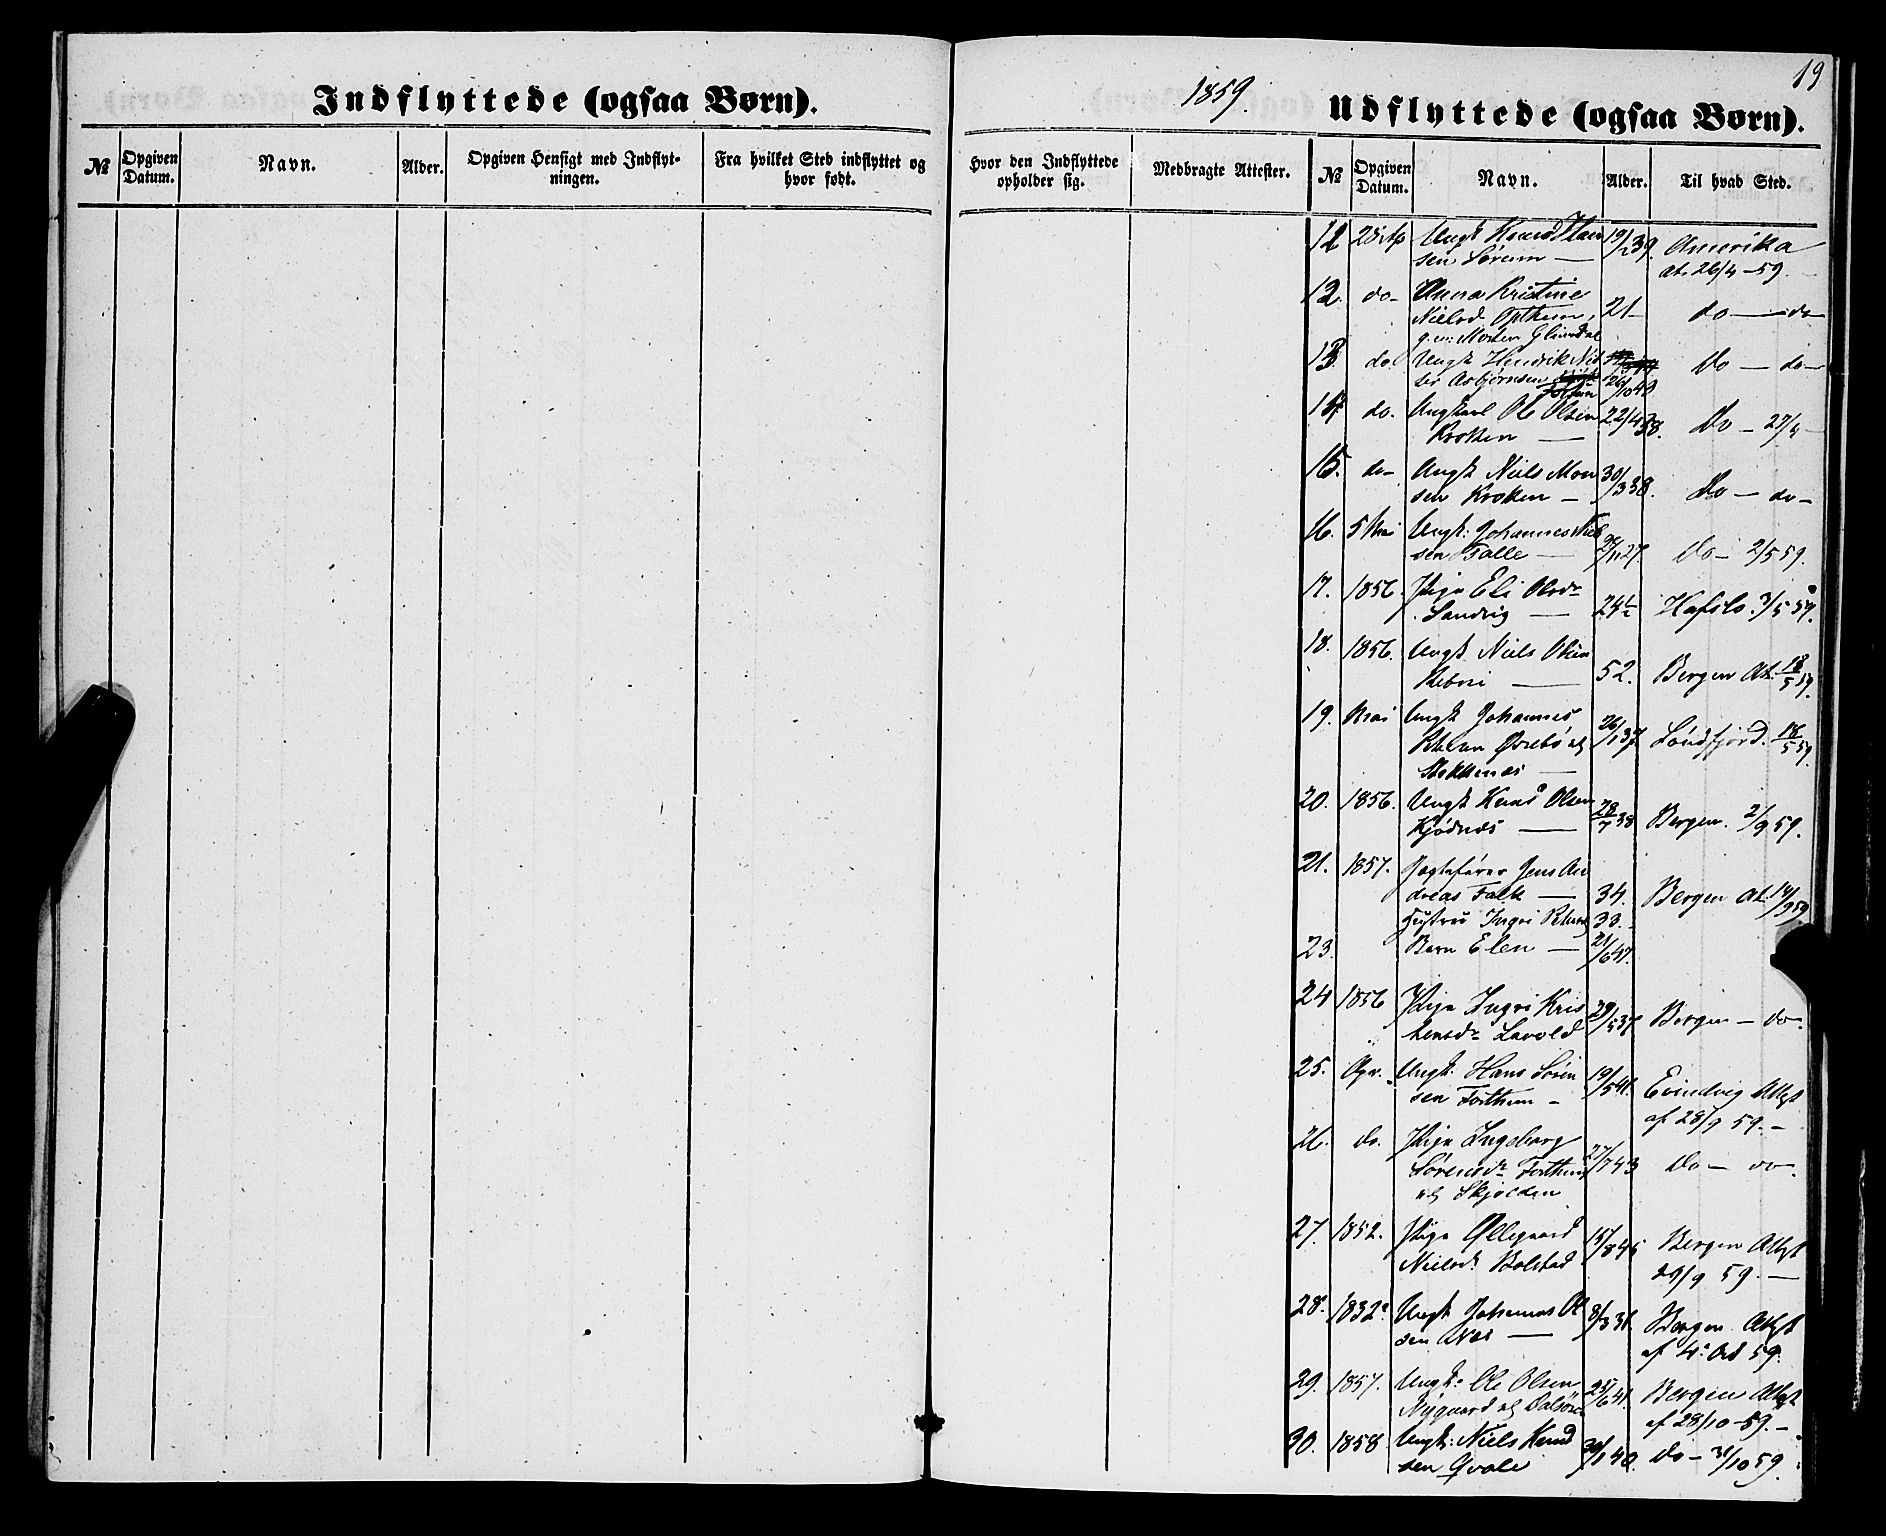 Indflyttede (ogsaa Børn).
№
Opgiven Datum.
Navn.
Alder.
Opgiven Hensigt med Indflyt-
ningen.
Fra hvilket Sted indflyttet og
hvor født.
19
1859.
Udflyttede (ogsaa Børn).
Hvor den Indflyttede
opholder sig.
Medbragte Attester.
№
Opgiven Datum.
Navn.
Alder.
Til hvad Sted.
11 28 Ap Ungk Knud Han 19/2 39. Amerika
sen Sørum — At. 26/4 - 59.
12. do- Anna Kristine
Nielsd Opthun, 21- do — do-
g. m. Morten
13. do Ungk Henrik Niel Do — do-
ser Asbjørnsen 26/10 40
14 do. Ungkarl Ole Olsen 22/4 38. Do - 27/4
Kroken —
15. do- Ungk Niels Mon 30/3 38. Do - do-
sen Kroken -
16. 5 Mai Ungk: Johannes Niel
sen Talle — /11 27. Do- 2/5 59.
17. 1856. Pige Eli Olsdr
Sandvig — 24½ Hafslo 3/5 59.
18. 1856. Ungk Niels Olsen
— 52. Bergen At. 18/5 59.
19. Mai Ungk Johannes 26/1 37 Søndfjord. 18/5 59.
Øvrebø
—
20. 1856. Ungk Knud Olsen 28/7 38 Bergen. 2/9 59.
Kjødnes —
21. 1857. Jagtefører Jens An
dreas Falk — 34. Bergen At. 14/9 59
Hustru Ingri 33.-
23. Barn Elen — 21/6 47.
24 1856 Pige Ingri Kris 29/5 37. Bergen - do-
tensdr Lavold
25. Opv. Ungk: Hans Søren 19/5 41. Evindvig Attest
sen Forthun - af 28/9 59.-
26. do. Pige Ingeborg
Sørensdr Forthun 27/7 43 Do - do-
Skjolden
27. 1852. Pige Øllegaard 15/8 45 Bergen Attest
Nielsdr Bolstad /9 59. —
28. 1832? Ungk Johannes Ol 8/3 31. Bergen Attest
sen Næs — af 4. Oct 59.
29. 1857. Ungk: Ole Olsen 25/6 41. Bergen Attest
Nygaard Dalsøren af 28/10 - 59.-
30. 1858 Ungk: Niels Knud 30/1 40. Do - 31/10 59.
sen Qvale